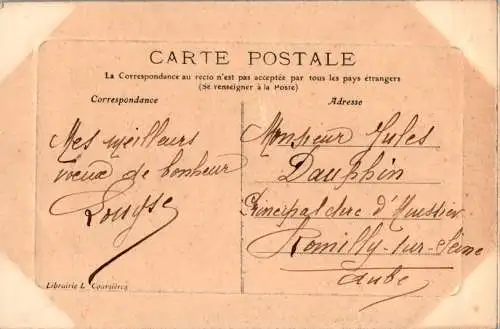 CARTE POSTALE
La Correspondance au recto n'est pas acceptée par tous les pays étrangers
(Se renseigner à la Poste)
Correspondance
Adresse
Mes meilleurs
voeux de bonheur
Monsieur Jules
Dauphin
Principal clerc d'Huissier
Romilly-sur-Seine
Aube
Librairie L.